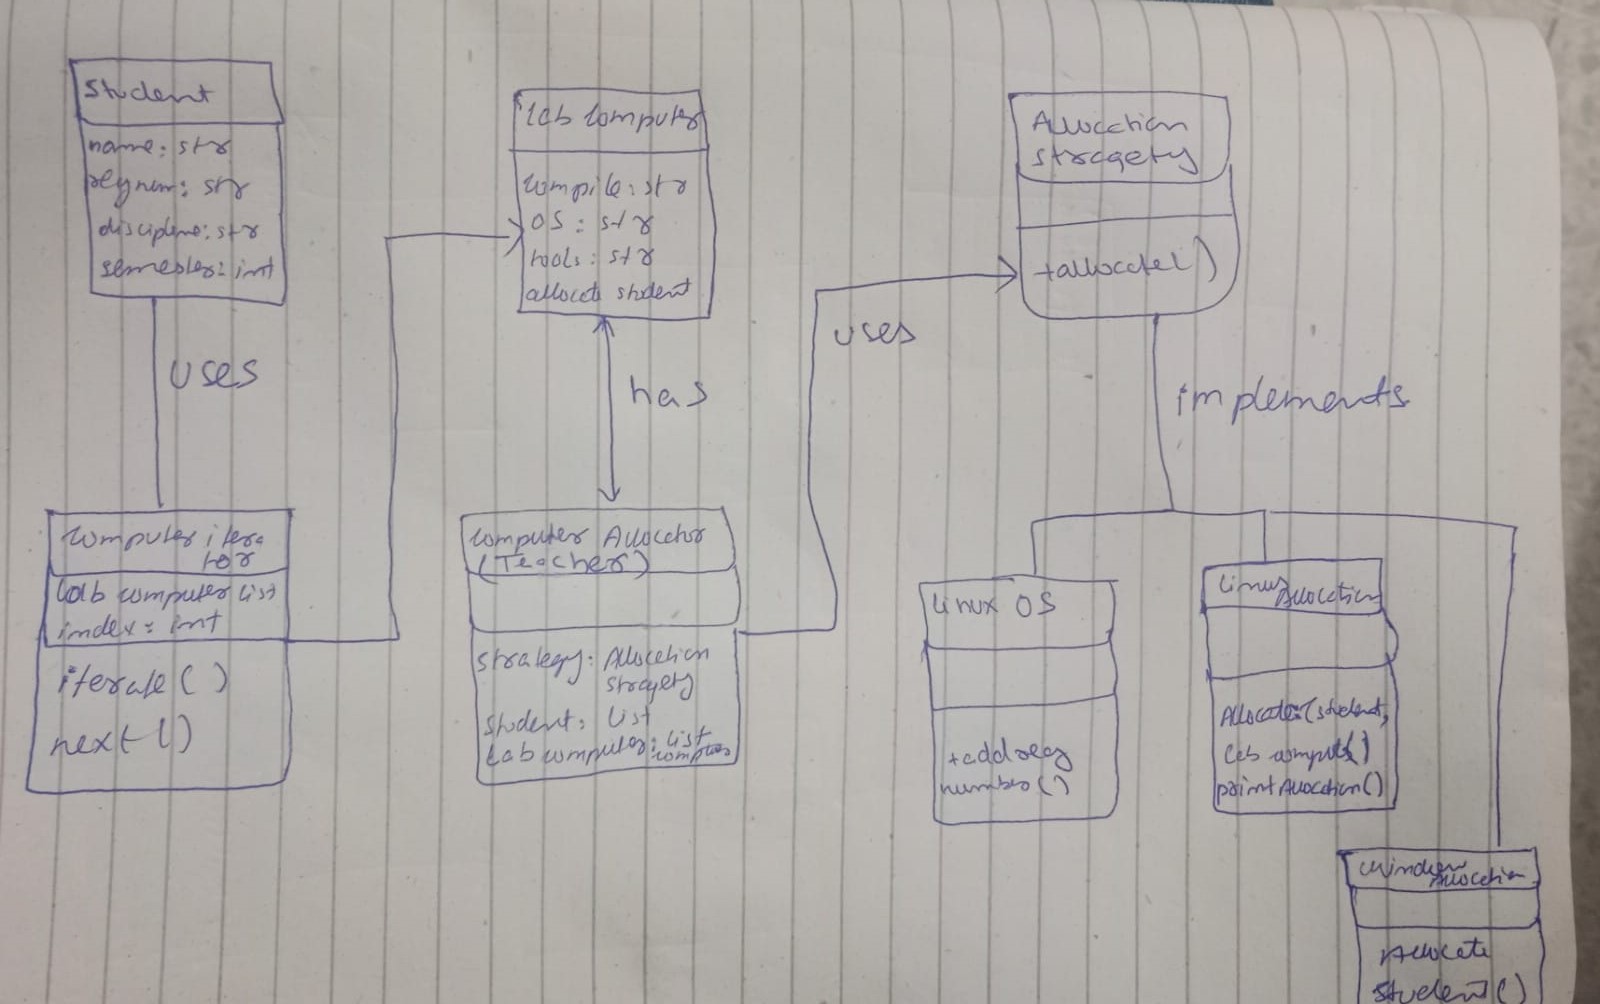 Student
name: str
regnum: str
discipline: str
semester: int
uses
Computer itera
tor
Lab computer list
index: int
iterate()
next()
lab computer
compile: str
OS: str
tools: str
allocate student
has
Computer Allocator
(Teacher)
strategy: Allocation
stragety
Student: List
Lab computer: list
computer
uses
Allocation
stragety
+allocate()
implements
Linux OS
+addreg
number()
Linux
Allocation
Allocate(student,
Lab comput)
print Allocation()
Window
Allocation
Allocate
student()